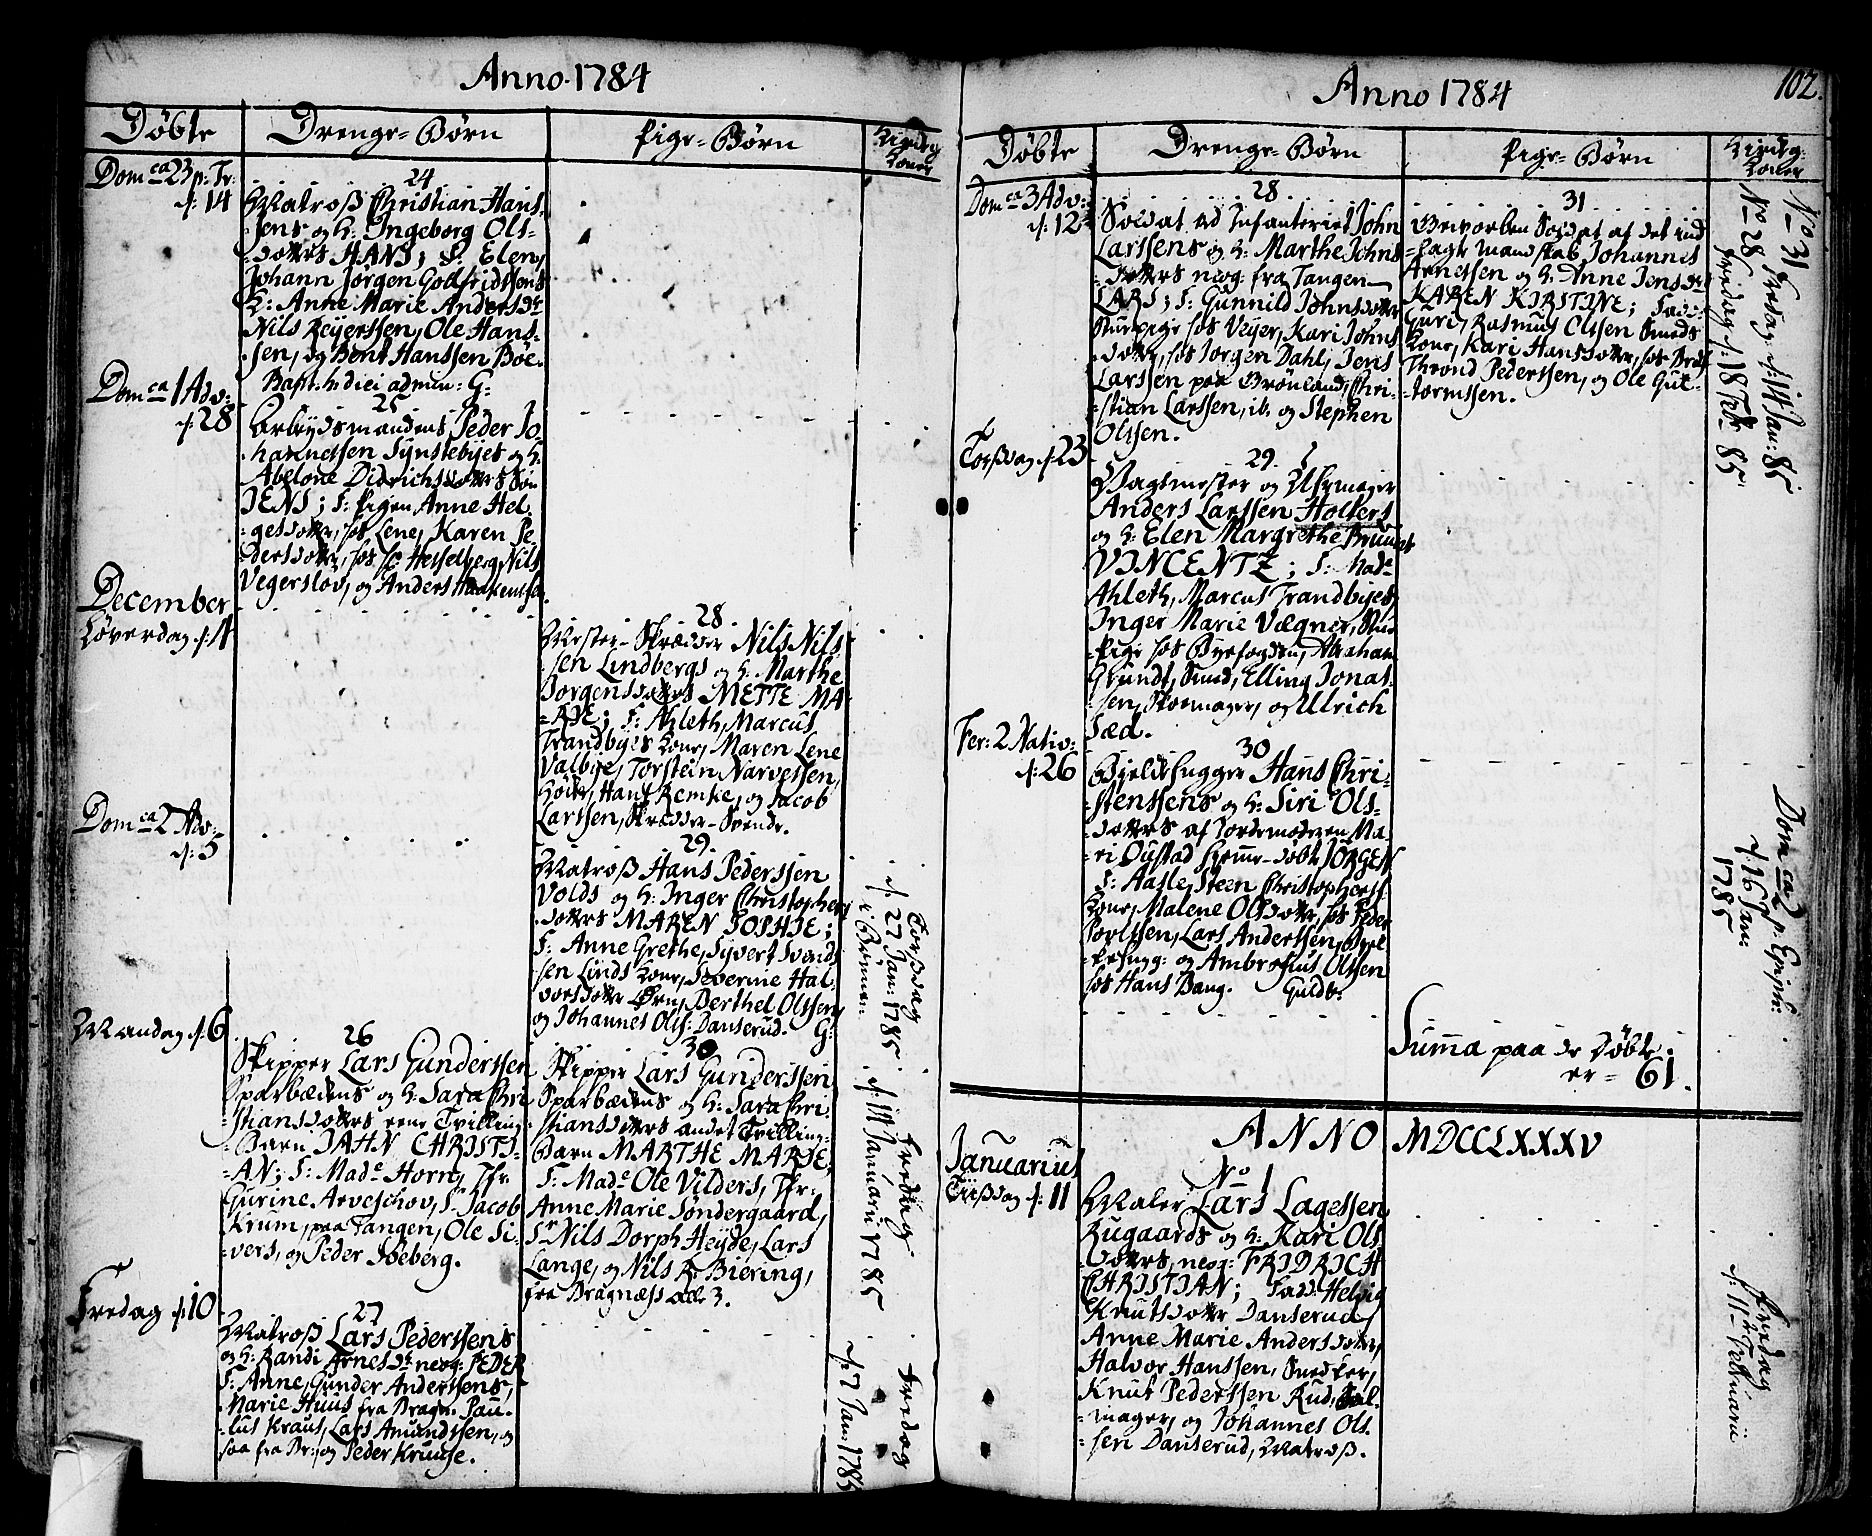 Anno 1784
Døbte
Drenge-Børn
Pige-Børn
Kirkeg.
Koner
Dom ca 23 p: Tr:
d: 14
24
Matros Christian Hans-
sens og H: Ingeborg Ols-
dotters HANS; F: Elen,
Johann Jørgen Godtfridssons
K: Anne Marie Andersdtr
Nils Reyerssen, Ole Hans-
sen, og Bent Hanssen Böe.
Bapt. h. diei admin: G:
Dom ca 1 Adv:
d: 28
25
Arbejdsmandens Peder Jo-
hannessen Synstebyes og H:
Abelone Didrichsdotters Søn
JENS; F: Pigen Anne Hel-
gesdotter, hos Lene, Karen Pe-
dersdotter, hos Hr Hesselberg, Nils
Vegersløv, og Anders
December
Løverdag d: 4
28
Mester-Skrædder Nils Nils-
sen Lindbergs og H: Marthe
Jørgensdotters METTE MA-
RIE; F: Ahleth, Marcus
Trandbyes Kone, Maren Lene
Valbye, Torstein Narvessen,
Hans Remke, og Jacob
Larssen, Skrædder-Svende.
Dom ca 2 Adv:
d: 5
29.
Matros Hans Pederssen
Volds og H: Inger Christophers-
dotters MAREN SOPHIE;
F: Anne Grethe, Syvert Svend-
sen Linds Kone, Severine Hal-
vorsdotter Ørn, Berthel Olssen,
og Johannes Ols: Danserud. G:
Torsdag
d: 27 Jan: 1785
i Bønne:
Mandag d: 6
26
Skipper Lars Gunderssen
Sparbædens og H: Sara Chri-
stiansdotters eene Tvilling-
Barn JAHN CHRISTI-
AN; F: Made Horn, Jfr
Gurine Arveschov, Sr Jacob
Krum, paa Tangen, Ole Si-
vers, og Peder Sbeberg.
30
Skipper Lars Gunderssen
Sparbædens og H: Sara Chri-
stiansdotters andet Tvilling-
Barn MARTHE MARIE;
F: Made Ole Vilders, Jfr:
Anne Marie Søndergaard,
Sr Nils Dorph Heyde, Lars
Lange, og Nils R: Biering,
fra Bragnæss alle 3.
Fredag
d: 14 Januarii 1785
Fredag d: 10
27
Matros Lars Pederssens
og H: Randi Arnesdtr neog: PEDER
F: Anne, Gunder Anderssens,
Marie Huus fra Bragn. Pau-
lus Kraus, Lars Amundssen, og
saa fra Br: og Peder Kruuse.
Fredag
d: 7 Jan: 1785
Anno 1784
102.
Døbte
Drenge-Børn
Pige-Børn
Kirkeg:
Koner
Dom ca 3 Adv:
d: 12
28
Soldat ved Infanteriet John
Larssens og H: Marthe Johns-
dotters neog. fra Tangen
LARS; F: Gunnild Johnsdotter
Stuepige hos Vejer, Kari Johns
dotter, hos Jørgen Dahl, Jens
Larssen paa Grønland, Chri-
stian Larssen, ib. og Stephen
Olssen.
31
Geworben Soldat af det ind
lagte Mandskab Johannes
Arnessen og H: Anne Jensdtr
KAREN KIRSTINE; Fadd:
Guri, Rasmus Olssen Smeds
Kone, Kari Hansdotter, hos
Thrond Pederssen, og Ole Gut-
tormssen.
No 31 Fredag d: 14 Jan: 85
No 28 Fredag d: 18 Febr 85
Torsdag d: 23
29.
Vagtmester og Uhrmager
Anders Larssen Hollers
og H: Elen Margrethe Bruuns
VINCENTZ; F: Made
Ahleth, Marcus Trandbyes,
Inger Marie Vægner, Stue-
Pige hos Byefogden, Abraham
Grundt, Smed, Elling Jonas-
sen, Skoemager, og Ulrich
Sæd.
Fer: 2 Nativ:
d: 26
30
Bielkehugger Hans Chri-
stenssens og H: Siri Ols-
dotters af Jordemoderen Ma-
ri Oustad hjemme-døbt JØRGEN
F: Aasle, Steen Christophers:
Kone, Malene Olsdotter, hos Peder
Povlssen, Lars Anderssen, Byel-
kehugg: og Ambrosius Olssen
hos Hans Bang. Guldbr.
Dom ca 2 p: Epiph:
d: 16 Jan:
1785
Summa paa de Døbte
er = 61.
ANNO MDCCLXXXV
Januarius
Tiisdag d: 11
No 1
Maler Lars Lagessen
Rugaards og H: Kari Ols-
dotters, neog: FRIDRICH
CHRISTIAN; Fadd: Helvig
Knutsdotter Danserud,
Anne Marie Andersdotter,
Halvor Hanssen, Snedker,
Knut Pederssen Rud, Sal-
mager, og Johannes Ols-
sen Danserud, Matros.
Fredag
d: 11te Februarii